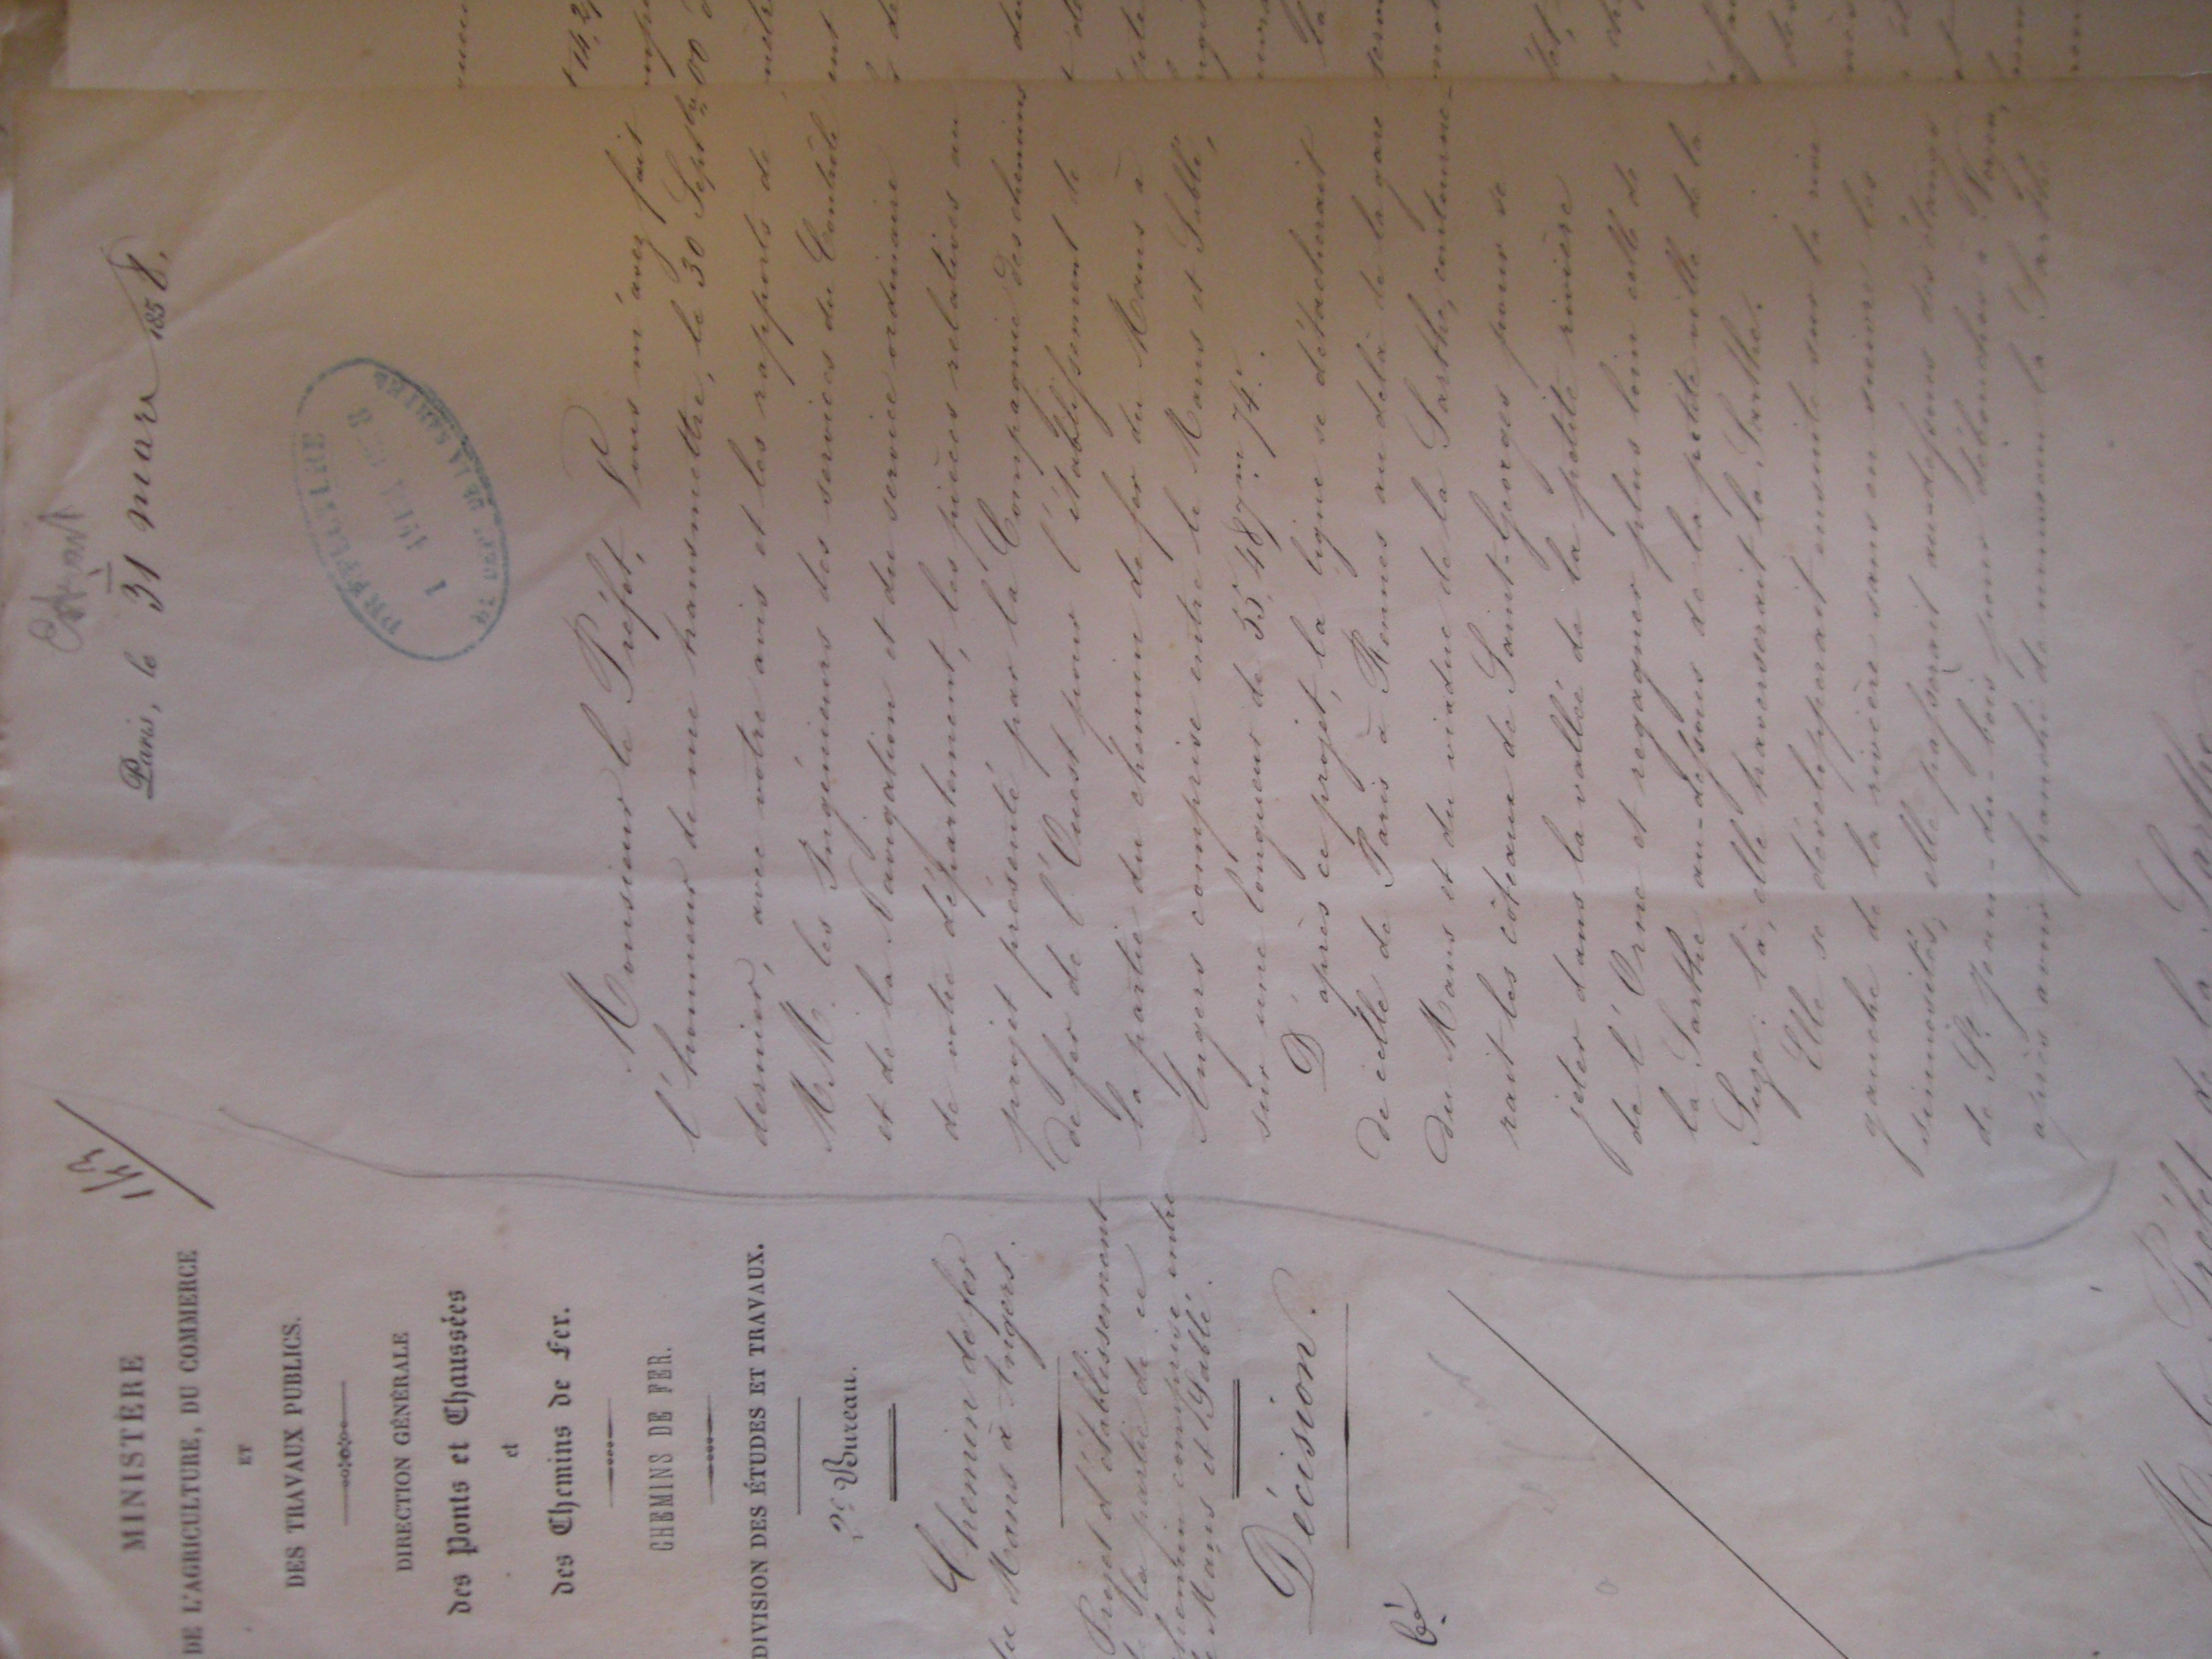 MINISTÈRE
DE L'AGRICULTURE, DU COMMERCE
ET
DES TRAVAUX PUBLICS.
DIRECTION GÉNÉRALE
des Ponts et Chaussées
et
des Chemins de Fer.
CHEMINS DE FER.
DIVISION DES ÉTUDES ET TRAVAUX.
2e Bureau.
Chemin de fer
du Mans à Angers.
Projet d'établissement
de la partie de ce
chemin comprise entre
le Mans et Sablé.
Décision.
Extrait
Paris, le 31 mars 1858.
PRÉFECTURE
DE LA SARTHE
Monsieur le Préfet, Vous m'avez fait
l'honneur de me transmettre, le 30 Septbre
dernier, avec votre avis et les rapports de
MM. les Ingénieurs des services du Contrôle
et de la Navigation et du service ordinaire
de votre département, les pièces relatives au
projet présenté par la Compagnie des chemins
de fer de l'Ouest pour l'établissement de
la partie du chemin de fer du Mans à
Angers comprise entre le Mans et Sablé,
sur une longueur de 55,487m 74c.
D'après ce projet, la ligne se détacherait
de celle de Paris à Rennes au delà de la gare
du Mans et du viaduc de la Sarthe, contourne-
rait les côteaux de Saint-Georges pour se
jeter dans la vallée de la petite rivière
de l'Orne et regagner plus loin celle de
la Sarthe au-dessous de la petite ville de la
Suze; là, elle traverserait la Sarthe.
Elle se développerait ensuite sur la rive
gauche de la rivière sans en suivre les
sinuosités, elle passerait au-dessous des étangs
de St. Jean-du-bois pour déboucher à Noyen,
après avoir franchi de nouveau la Sarthe
M. le Préfet de la Sarthe